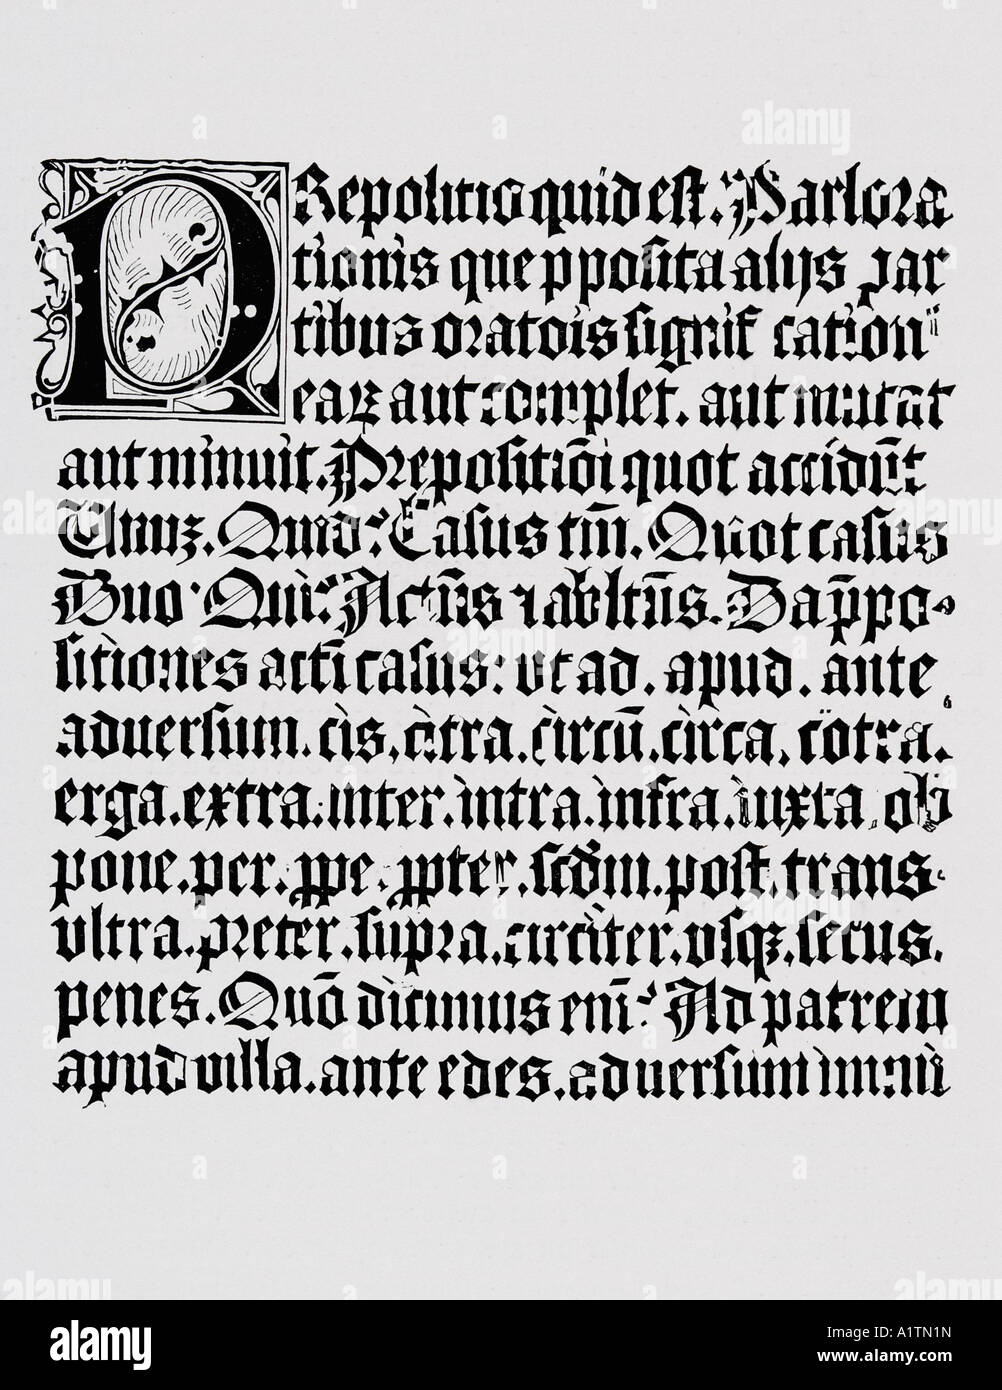 PRepositio quid est. Pars ora
tionis que pposita alijs par
tibus oratõis significationẽ
eaꝝ aut complet. aut mutat
aut minuit. Prepositiõi quot accidũt
Unuꝫ. Quid? Casus tm̃. Quot casus
Duo. Qui? Actũs ⁊ abltũs. Da p̃po-
sitiones acti casus: vt ad. apud. ante
aduersum. cis. citra. circũ. circa. cõtra.
erga. extra. inter. intra. infra. iuxta. ob
pone. per. ꝓpe. ꝓpter. scd̃m. post. trans.
vltra. preter. supra. circiter. vsqꝫ. secus.
penes. Quõ dicimus eni? Ad patrem
apud villa. ante edes. aduersum inimi
alamy
Image ID: A1TN1N
www.alamy.com